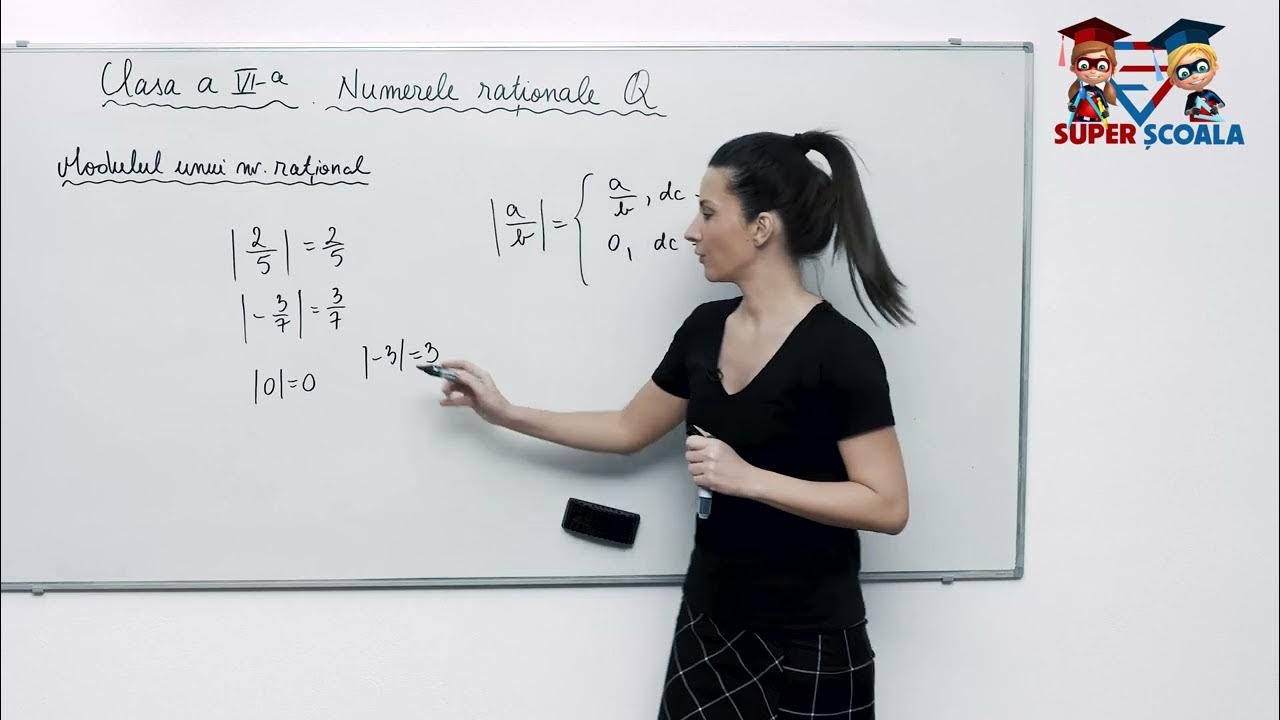 Clasa a VI-a. Numerele raționale Q
Modulul unui nr. rațional
|2/5| = 2/5
|-3/7| = 3/7
|0|=0
|-3|=3
|a/b| = { a/b, dc
0, dc
SUPER ȘCOALA